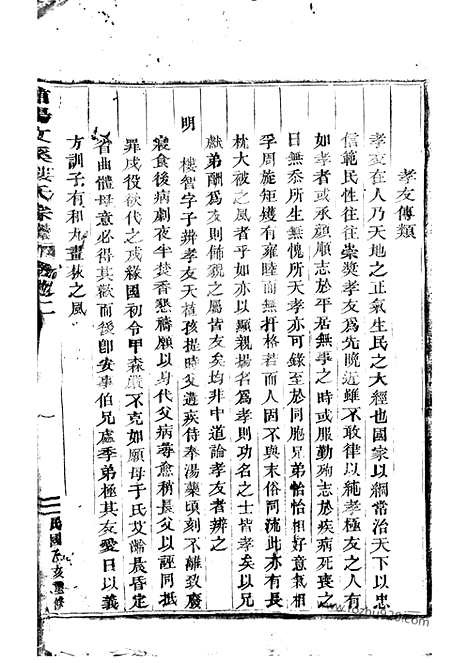 孝友傳類
孝友在人乃天地之正氣生民之大經也國家以綱常治天下以忠
信範民性往往崇獎孝友為先晚近雖不敢律以純孝極友之人有
如孝者或承顏順志於平居無事之時或服勤殉志於疾病死喪之
日無忝所生無愧所天孝亦可錄至於同胞兄弟怡怡相好意氣相
孚周旋矩矱有雍睦而無扞格若而人因不與末俗同流此亦有長
枕大被之風者乎如亦以顯親揚名為孝則功名之士皆孝矣以兄
獻弟酬為友則佛貌之屬皆友矣均非中道論孝友者辨之
明 樓智字子辨孝友天植孩提時父遘疾侍奉湯藥頃刻不離致廢
寢食後病劇夜半焚香懇禱願以身代父病尋愈稍長父以誣同抵
罪戍役欲代之戍緣國初令甲森嚴不克如願母于氏艾齡晨昏定
省曲體母意必得其歡而後卽安事伯兄處季弟極其友愛日以義
方訓子有和丸畫荻之風
民國乙亥重修